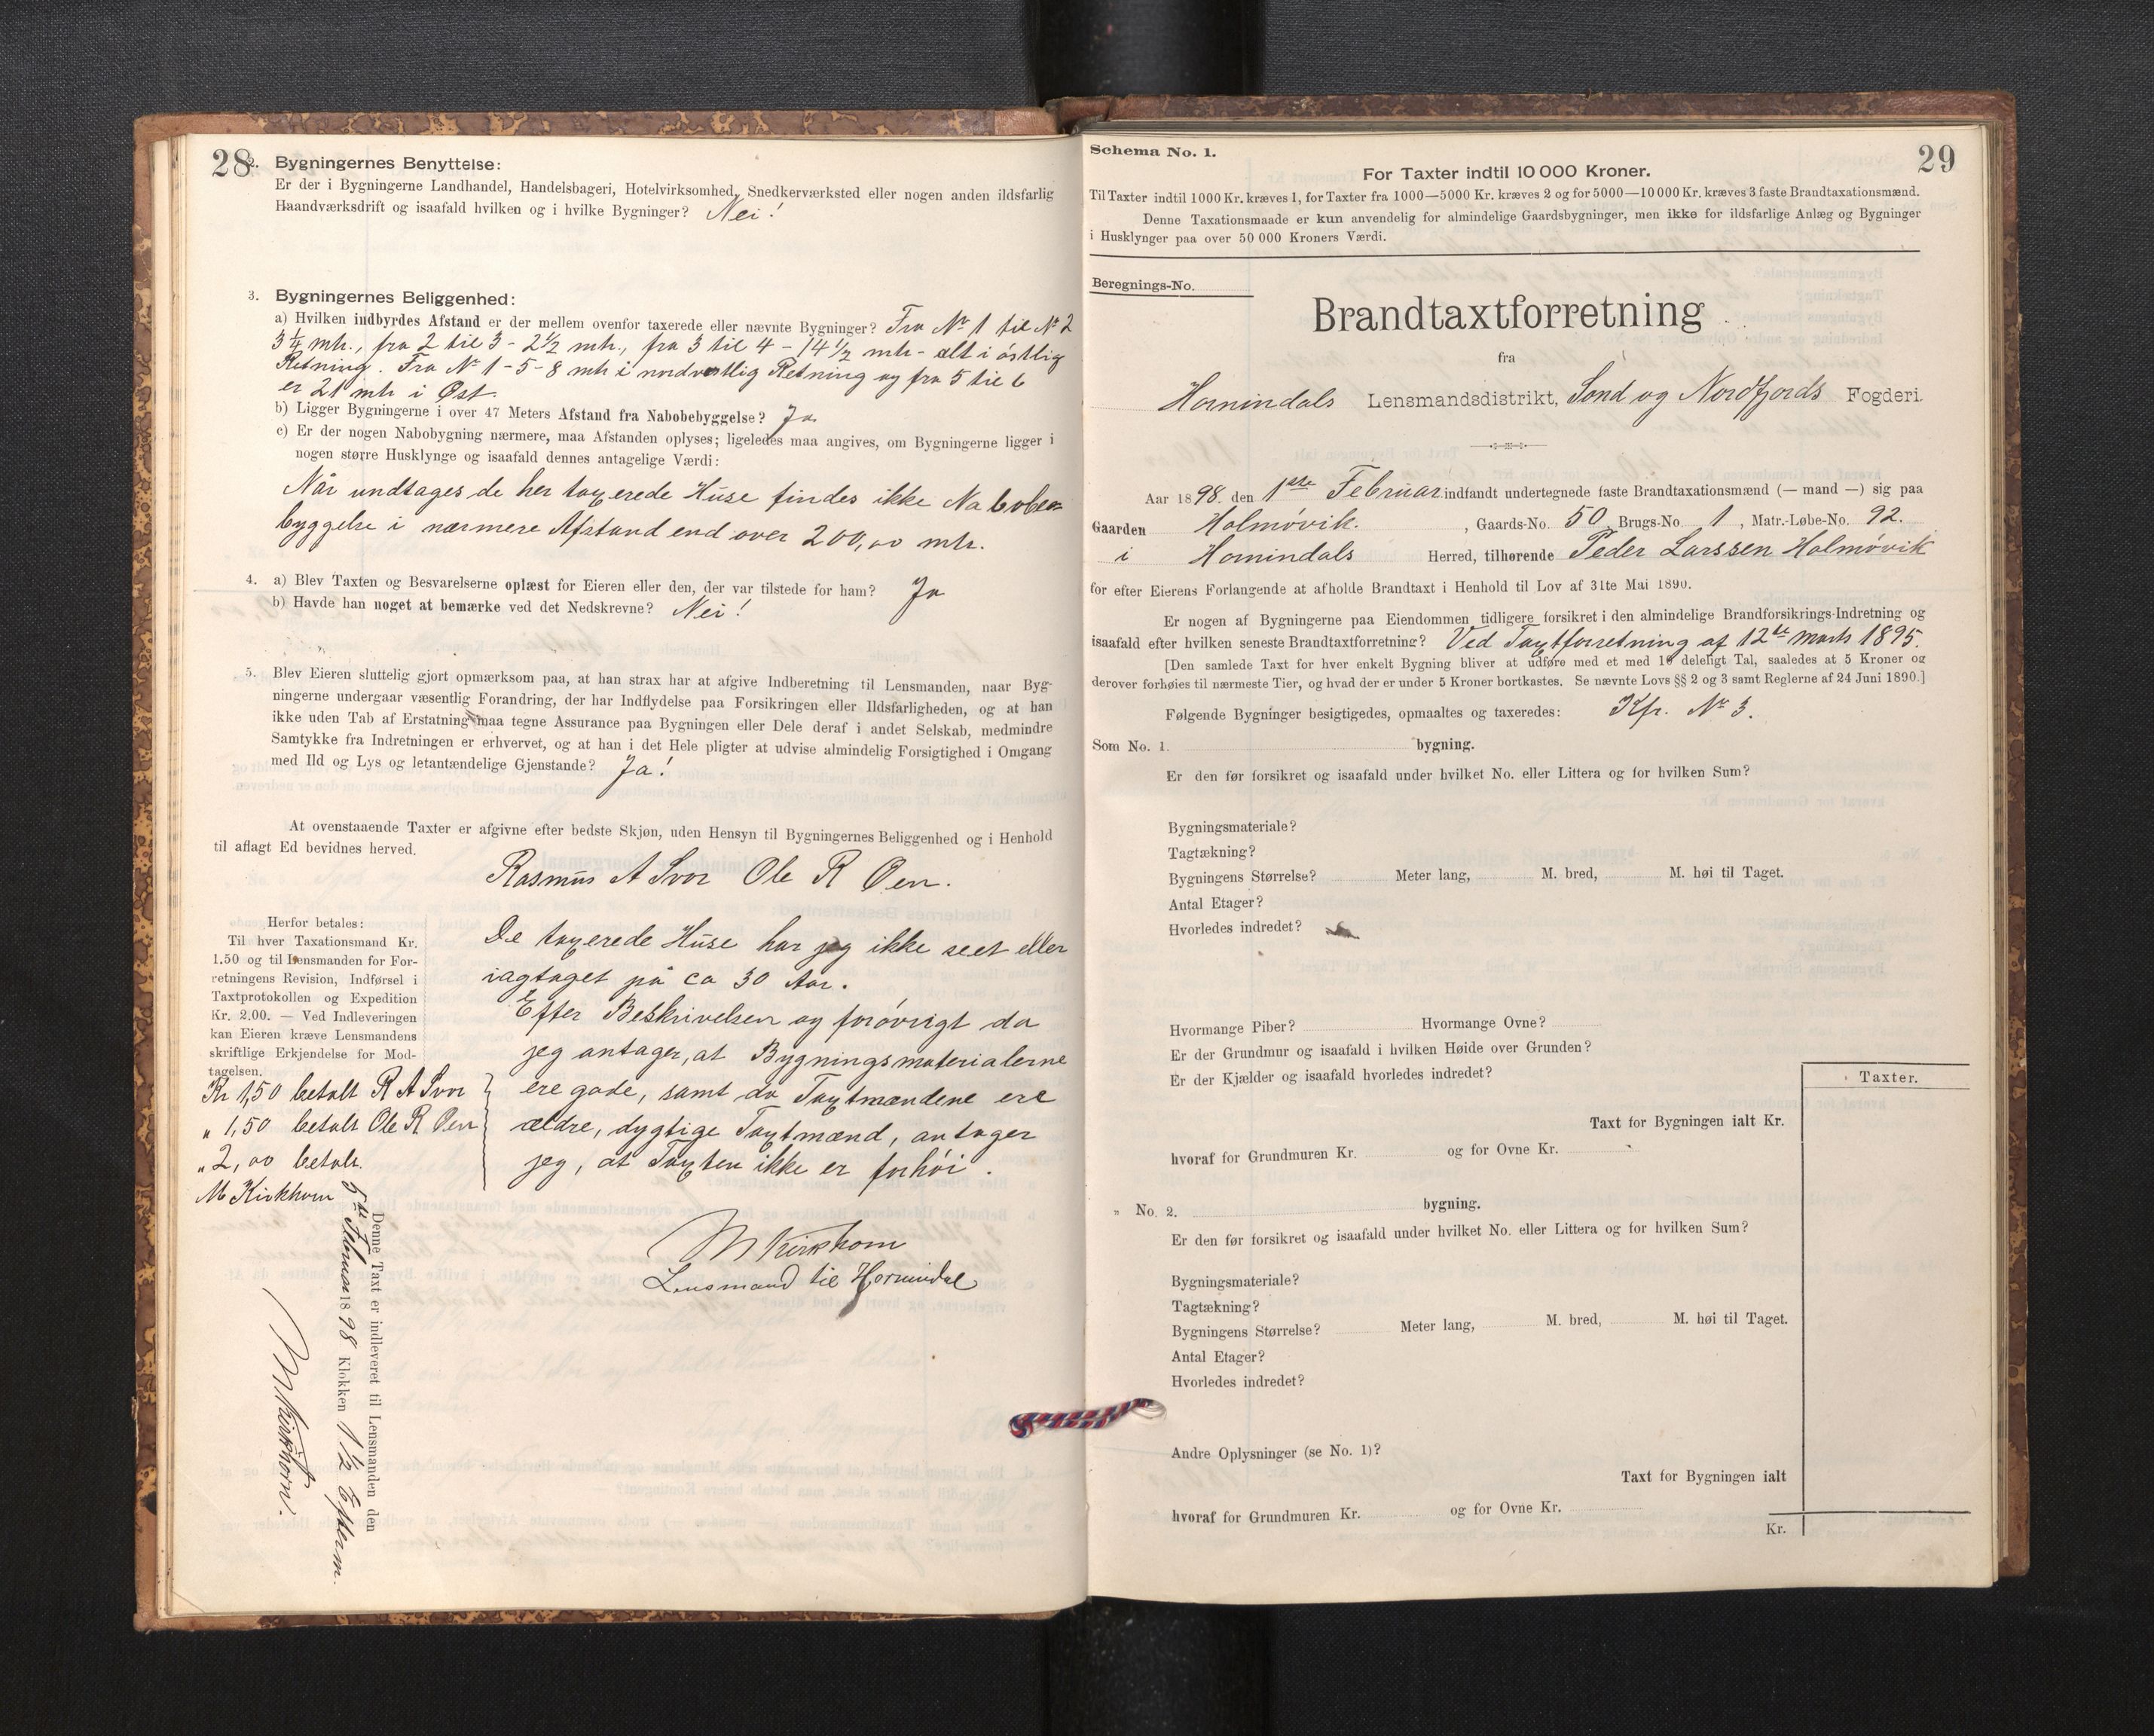 28
2. Bygningernes Benyttelse:
Er der i Bygningerne Landhandel, Handelsbageri, Hotelvirksomhed, Snedkerværksted eller nogen anden ildsfarlig
Haandværksdrift og isaafald hvilken og i hvilke Bygninger? Nei!
3. Bygningernes Beliggenhed:
a) Hvilken indbyrdes Afstand er der mellem ovenfor taxerede eller nævnte Bygninger? Fra Nr 1 til Nr 2
3 1/4 mtr., fra 2 til 3 - 2 1/2 mtr., fra 3 til 4 - 14 1/2 mtr - alt i östlig
Retning. Fra Nr 1 - 5 - 8 mtr i nordvestlig Retning og fra 5 til 6
er 21 mtr i Øst.
b) Ligger Bygningerne i over 47 Meters Afstand fra Nabobebyggelse? Ja
c) Er der nogen Nabobygning nærmere, maa Afstanden oplyses; ligeledes maa angives, om Bygningerne ligger i
nogen større Husklynge og isaafald dennes antagelige Værdi:
Når undtages de her taxerede Huse findes ikke Nabobe-
byggelse i nærmere Afstand end over 200,00 mtr.
4. a) Blev Taxten og Besvarelserne oplæst for Eieren eller den, der var tilstede for ham? Ja
b) Havde han noget at bemærke ved det Nedskrevne? Nei!
5. Blev Eieren sluttelig gjort opmærksom paa, at han strax har at afgive Indberetning til Lensmanden, naar Byg-
ningerne undergaar væsentlig Forandring, der har Indflydelse paa Forsikringen eller Ildsfarligheden, og at han
ikke uden Tab af Erstatning maa tegne Assurance paa Bygningen eller Dele deraf i andet Selskab, medmindre
Samtykke fra Indretningen er erhvervet, og at han i det Hele pligter at udvise almindelig Forsigtighed i Omgang
med Ild og Lys og letantændelige Gjenstande? Ja!
At ovenstaaende Taxter er afgivne efter bedste Skjøn, uden Hensyn til Bygningernes Beliggenhed og i Henhold
til aflagt Ed bevidnes herved.
Rasmus A Svor Ole R Øen.
Herfor betales:
Til hver Taxationsmand Kr.
1.50 og til Lensmanden for For-
retningens Revision, Indførsel i
Taxtprotokollen og Expedition
Kr. 2.00. — Ved Indleveringen
kan Eieren kræve Lensmandens
skriftlige Erkjendelse for Mod-
tagelsen.
Kr 1,50 betalt R A Svor
" 1,50 betalt Ole R Øen
" 2,00 betalt.
M Kirkhorn
De taxerede Huse har jeg ikke seet eller
iagttaget på ca 30 Aar.
Efter Beskrivelsen og forövrigt da
jeg antager, at Bygningsmaterialerne
ere gode, samt da Taxtmændene ere
ældre, dygtige Taxtmænd, antager
jeg, at Taxten ikke er forhöi.
M Kirkhorn
Lensmand til Hornindal
Denne Taxt er indleveret til Lensmanden den
5te Februar 1898 Klokken 1 1/2 Efterm.
M Kirkhorn.
29
Schema No. 1.
For Taxter indtil 10 000 Kroner.
Til Taxter indtil 1000 Kr. kræves 1, for Taxter fra 1000—5000 Kr. kræves 2 og for 5000—10 000 Kr. kræves 3 faste Brandtaxationsmænd.
Denne Taxationsmaade er kun anvendelig for almindelige Gaardsbygninger, men ikke for ildsfarlige Anlæg og Bygninger
i Husklynger paa over 50 000 Kroners Værdi.
Beregnings-No.
Brandtaxtforretning
fra
Hornindals Lensmandsdistrikt, Sønd og Nordfjords Fogderi.
Aar 1898. den 1ste Februar indfandt undertegnede faste Brandtaxationsmænd (— mand —) sig paa
Gaarden Holmövik. , Gaards-No. 50, Brugs-No. 1, Matr.-Løbe-No. 92.
i Hornindals Herred, tilhørende Peder Larssen Holmövik
for efter Eierens Forlangende at afholde Brandtaxt i Henhold til Lov af 31te Mai 1890.
Er nogen af Bygningerne paa Eiendommen tidligere forsikret i den almindelige Brandforsikrings-Indretning og
isaafald efter hvilken seneste Brandtaxtforretning? Ved Taxtforretning af 12te marts 1895.
[Den samlede Taxt for hver enkelt Bygning bliver at udføre med et med 10 deleligt Tal, saaledes at 5 Kroner og
derover forhøies til nærmeste Tier, og hvad der er under 5 Kroner bortkastes. Se nævnte Lovs §§ 2 og 3 samt Reglerne af 24 Juni 1890.]
Følgende Bygninger besigtigedes, opmaaltes og taxeredes: Kfr. Nr 3.
Som No. 1. bygning.
Er den før forsikret og isaafald under hvilket No. eller Littera og for hvilken Sum?
Bygningsmateriale?
Tagtækning?
Bygningens Størrelse? Meter lang, M. bred, M. høi til Taget.
Antal Etager?
Hvorledes indredet?
Hvormange Piber? Hvormange Ovne?
Er der Grundmur og isaafald i hvilken Høide over Grunden?
Er der Kjælder og isaafald hvorledes indredet?
Taxter.
Taxt for Bygningen ialt Kr.
hvoraf for Grundmuren Kr. og for Ovne Kr.
" No. 2. bygning.
Er den før forsikret og isaafald under hvilket No. eller Littera og for hvilken Sum?
Bygningsmateriale?
Tagtækning?
Bygningens Størrelse? Meter lang, M. bred, M. høi til Taget.
Antal Etager?
Hvorledes indredet?
Andre Oplysninger (se No. 1)?
Taxt for Bygningen ialt
hvoraf for Grundmuren Kr. og for Ovne Kr.
Kr.